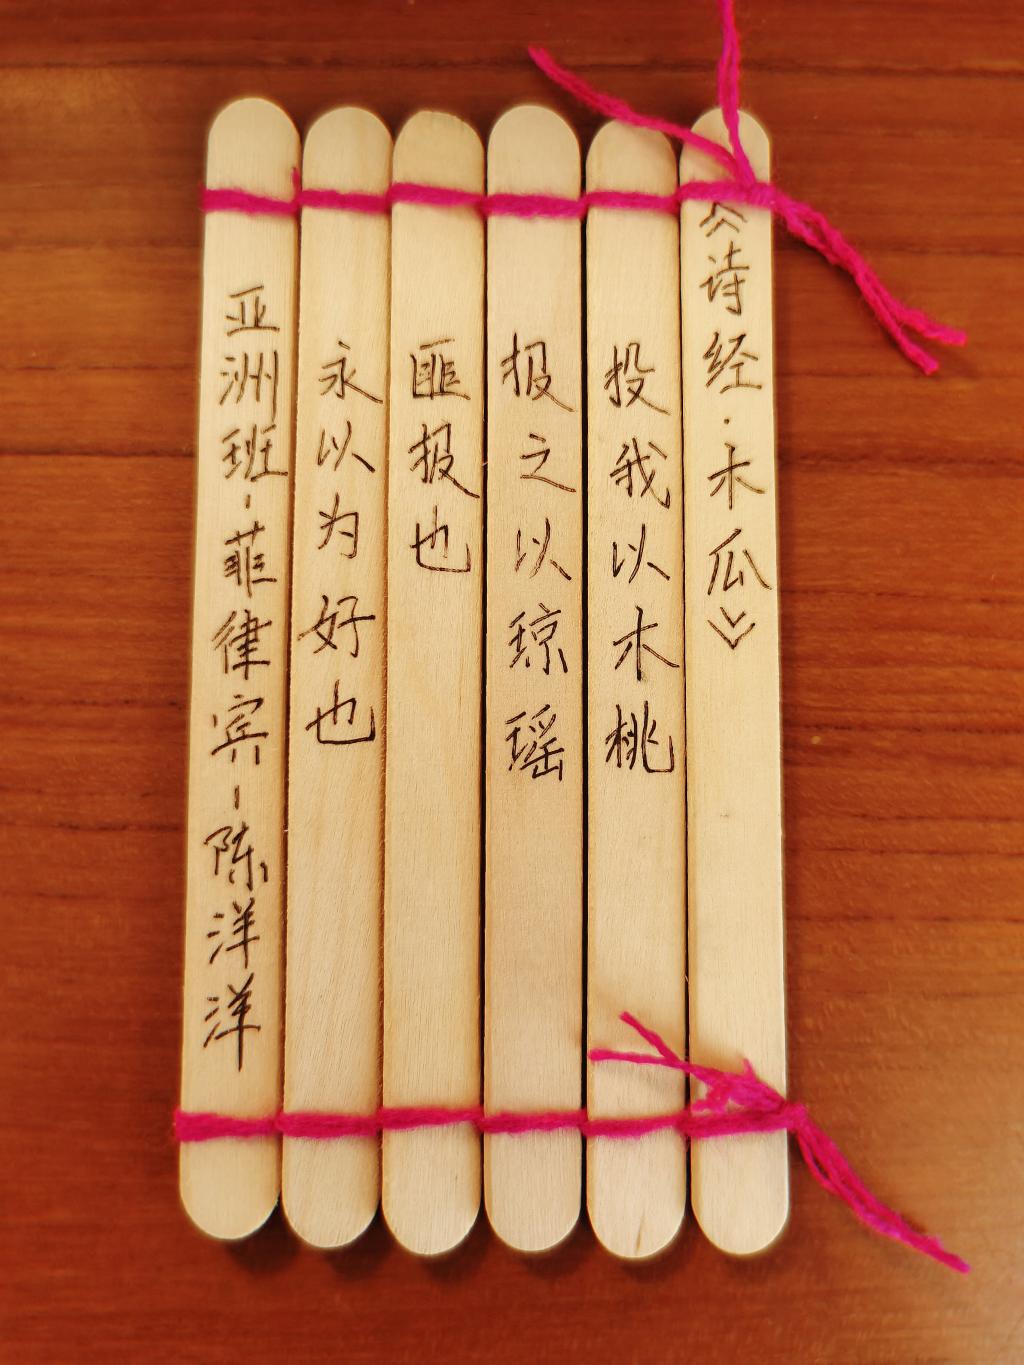 《诗经·木瓜》
投我以木桃
报之以琼瑶
匪报也
永以为好也
亚洲班-菲律宾-陈洋洋